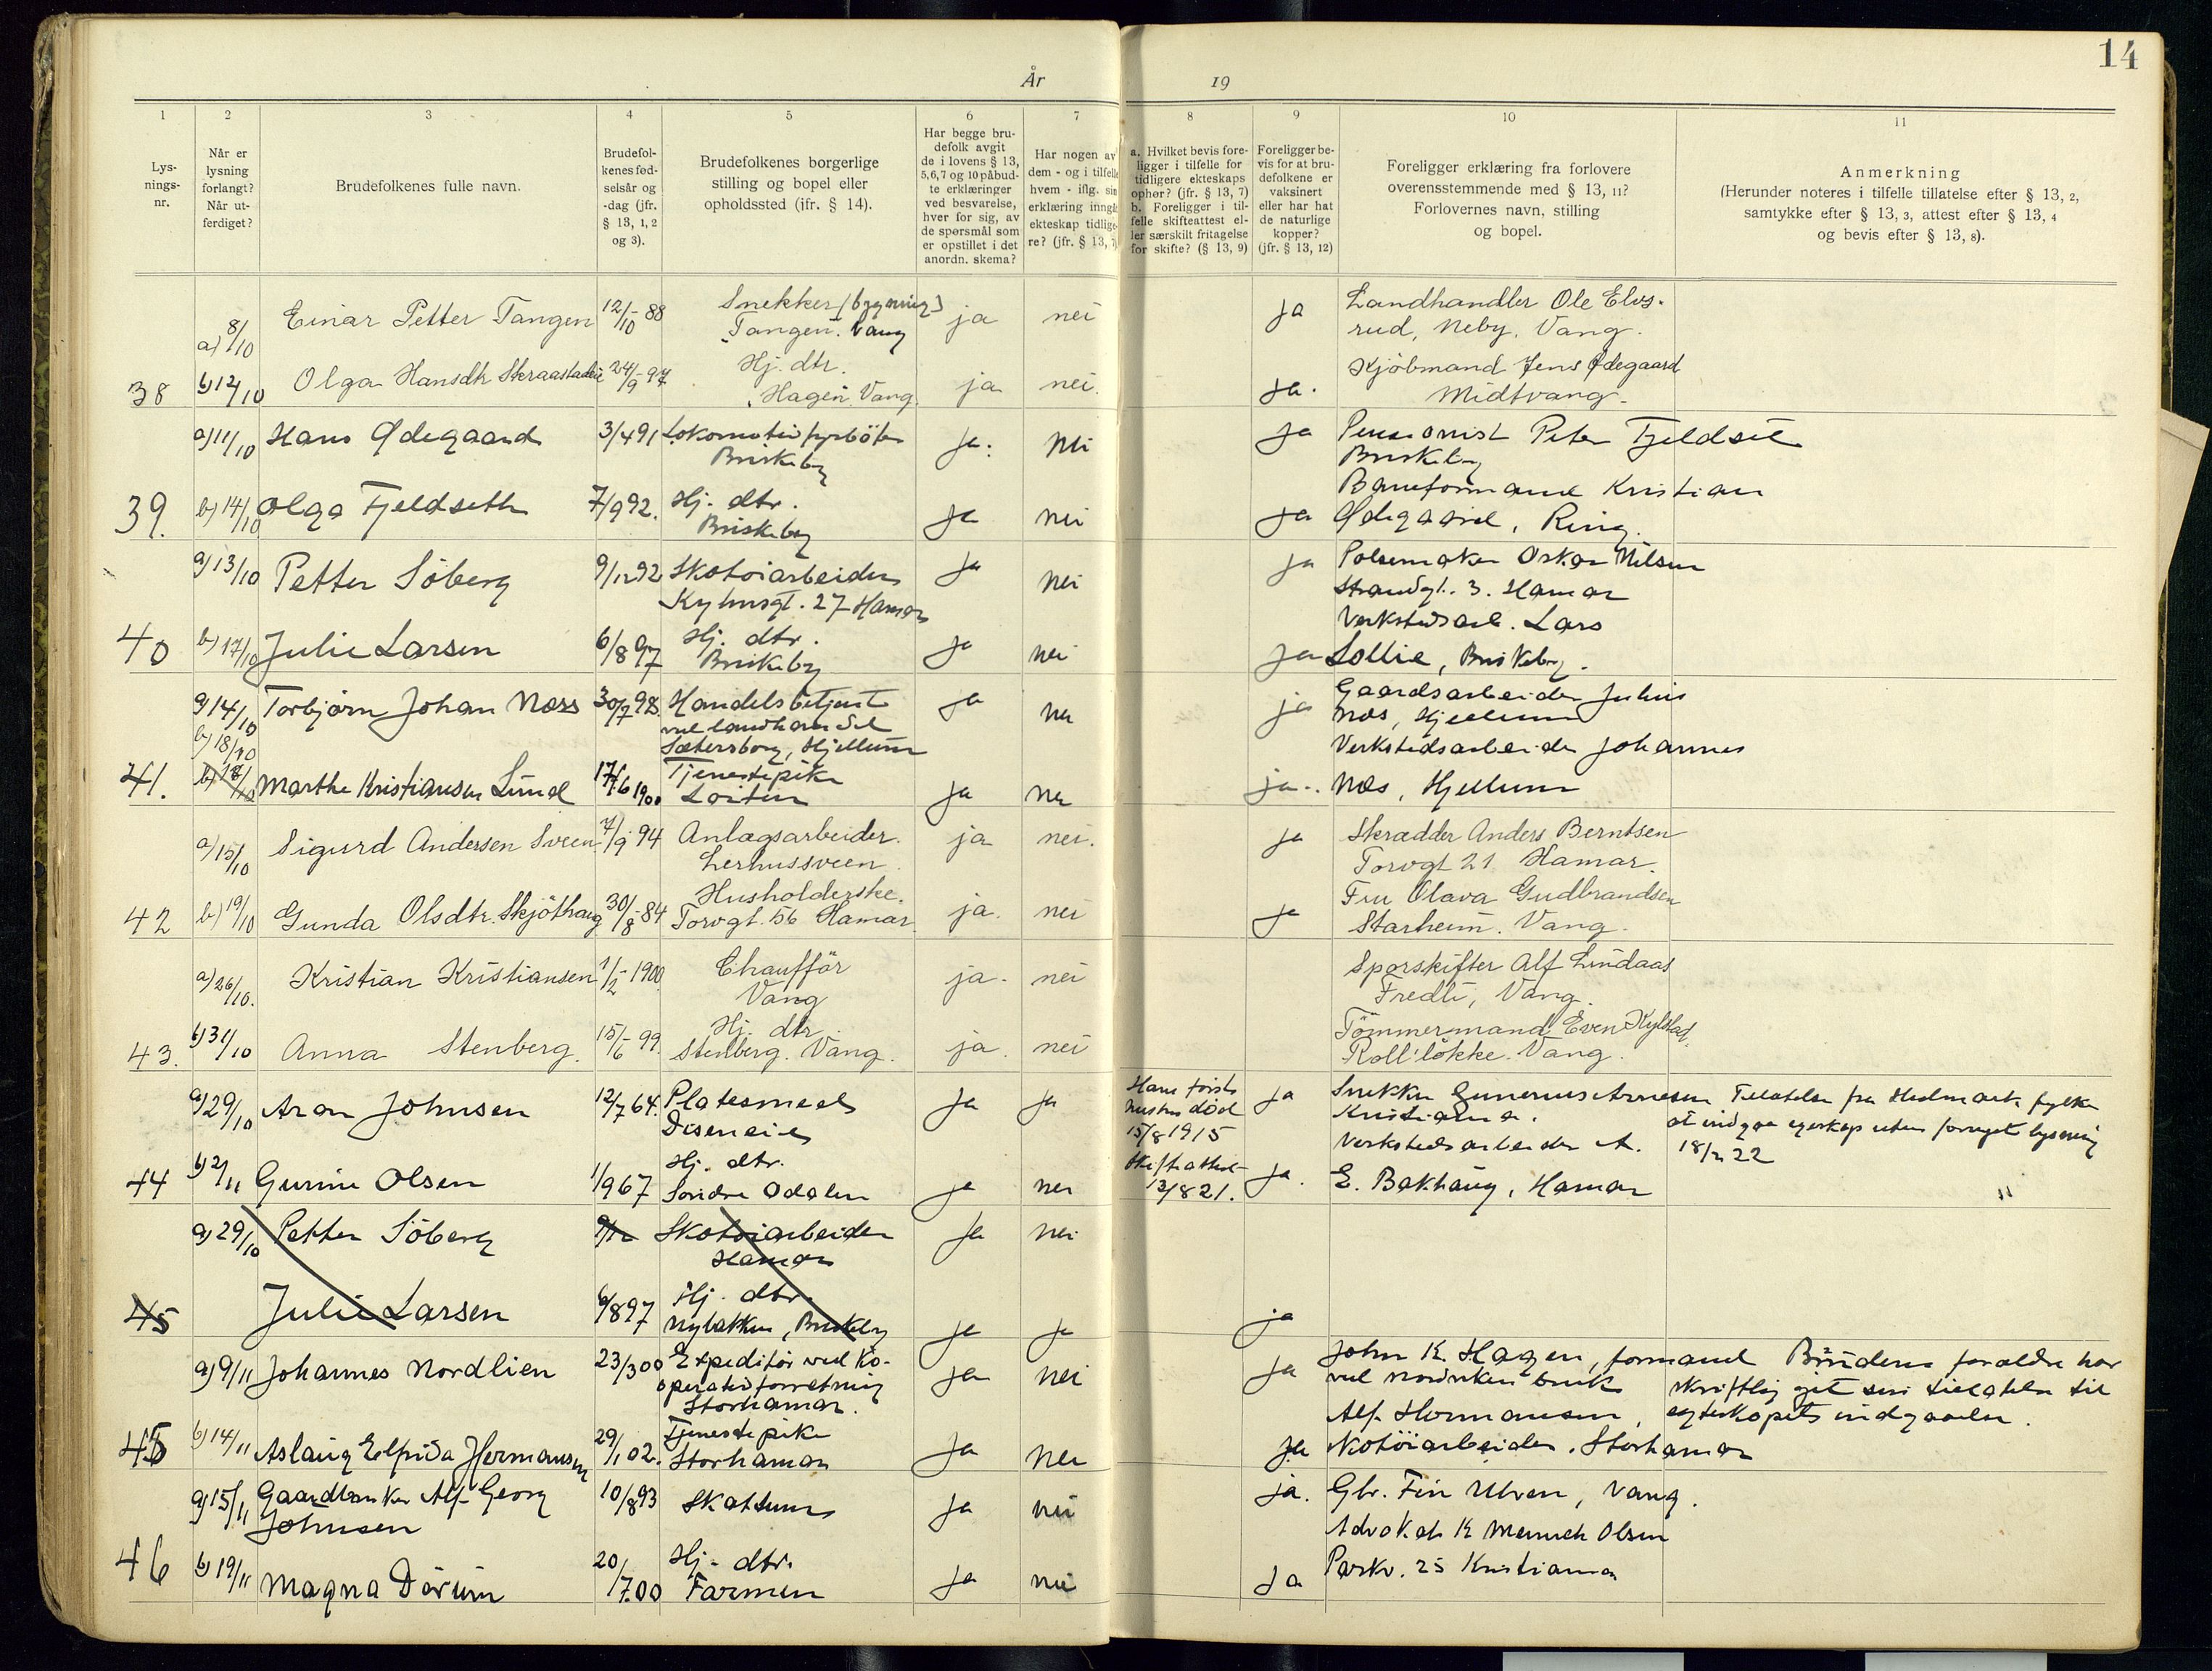 14
År 19
1 2 3 4 5 6 7 8 9 10 11
Lys-
nings-
nr.
Når er
lysning
forlangt?
Når ut-
ferdiget?
Brudefolkenes fulle navn.
Brudefol-
kenes fød-
selsår og
-dag (jfr.
§ 13, 1, 2
og 3).
Brudefolkenes borgerlige
stilling og bopel eller
opholdssted (ifr. § 14).
Har begge bru-
defolk avgit
de i lovens § 13,
5,6,7 og 10 påbud-
te erklæringer
ved besvarelse,
hver for sig, av
de spørsmål som
er opstillet i det
anordn. skema?
Har nogen av
dem - og i tilfelle
hvem - iflg. sin
erklæring inngå
ekteskap tidlige-
re? (jfr. § 13, 7)
a. Hvilket bevis fore-
ligger i tilfelle for
tidligere ekteskaps
ophør? (jfr. § 13, 7)
b. Foreligger i til-
felle skifteattest el-
ler særskilt fritagelse
for skifte? (§ 13, 9)
Foreligger be-
vis for at bru-
defolkene er
vaksinert
eller har hat
de naturlige
kopper?
(jfr. § 13, 12)
Foreligger erklæring fra forlovere
overensstemmende med § 13, 11?
Forlovernes navn, stilling
og bopel.
Anmerkning
(Herunder noteres i tilfelle tillatelse efter § 13, 2,
samtykke efter § 13, 3, attest efter § 13, 4
og bevis efter § 13, 8).
a) 8/10 Einar Petter Tangen 12/10-88 Snekker (bygning) ja nei ja Landhandler Ole Elvs-
Tangen. Vang rud, Neby, Vang.
38 b) 12/10 Olga Hansdtr Skraastadeie 24/9-97 Hj. dtr. ja nei. ja. Kjöbmand Jens Ødegaard
Hagen Vang Midtvang.
a) 11/10 Hans Ødegaard 3/4 91 Lokomotivfyrböter ja. nei ja Pensionist Peter Fjeldset
Briskeby Briskeby
39. b) 14/10 Olga Fjeldseth 7/9 92. Hj. dtr. ja nei ja Baneformand Kristian
Briskeby Ødegaard, Ring.
a) 13/10 Petter Söberg 9/12 92 Skotöiarbeider ja nei ja Pölsemaker Oskar Nilsen
Kyhusgt. 27 Hamar Strandgt. 3. Hamar
40 b) 17/10 Julie Larsen 6/8 97 Hj. dtr. ja nei ja Verkstedsarb. Lars
Briskeby Lollie, Briskeby.
a) 14/10 Torbjörn Johan Næss 30/7 98. Handelsbetjent ja nei ja Gaardsarbeider Julius
b) 18/10 ved landhandel Næs, Hjellum
Sætersborg, Hjellum Verkstedsarbeider Johannes
41. Marthe Kristiansen Lund 17/6 1900 Tjenestepike ja nei ja.. Næs, Hjellum
Löiten
a) 15/10 Sigurd Andersen Sveen 7/9 94 Anlægsarbeider. ja nei. ja Skrædder Anders Berntsen
Lerhussveen. Torvgt 21 Hamar.
42 b) 19/10 Gunda Olsdtr. Skjöthaug 30/8-84 Husholderske. ja. nei ja Fru Olava Gudbrandsen
Torvgt. 56 Hamar. Starheim. Vang.
a) 26/10. Kristian Kristiansen 1/2-1900 Chaufför ja. nei Sporskifter Alf Lindaas
Vang Fredli, Vang.
43. b) 31/10 Anna Stenberg. 15/6 99. Hj. dtr. ja. nei Tömmermand Even Kylstad.
Stenberg. Vang. Roll'lökke. Vang.
a) 29/10 Aron Johnsen 12/7 64. Platesmed ja ja Hans förste
hustru död
15/8 1915 ja Snekker Gunerius Arnesen
Diseneie Kristiania.
Tillatelse fra Hedmark fylke
at indgaa egteskap uten fornyet lysning
18/ 22
44 b) 2/11 Gurine Olsen 1/9 67 Hj. dtr. ja nei Skifteattest
13/8 21. ja. Verkstedsarbeider A.
Söndre Odalen E. Bakhaug, Hamar
a) 29/10 Petter Söberg 9/12 Skotöiarbeider ja nei
Hamar
45 Julie Larsen 6/8 97 Hj. dtr. ja ja ja
Nybakken, Briskeby
a) 9/11 Johannes Nordlien 23/3 00 Expeditör ved Ko- ja nei ja John K. Hagen, formand
operativforretning
Storhamar. Brudens forældre har
skriftlig git sin tillatelse til
egteskapets indgaaelse.
45 b) 14/11 Aslaug Elfrida Hermansen 29/1 02. Tjenestepike ja nei ja Alf Hermansen,
Storhamar skotöiarbeider. Storhamar
a) 15/11 Gaardbruker Alf Georg 10/8 93 Skattum ja nei ja. Gbr. Fin Ulven, Vang.
Johnsen
46 b) 19/11 Magna Dörum 20/7.00 Hj. dtr. ja nei ja Advokat K Olsen
Farmen Parkv. 25 Kristiania